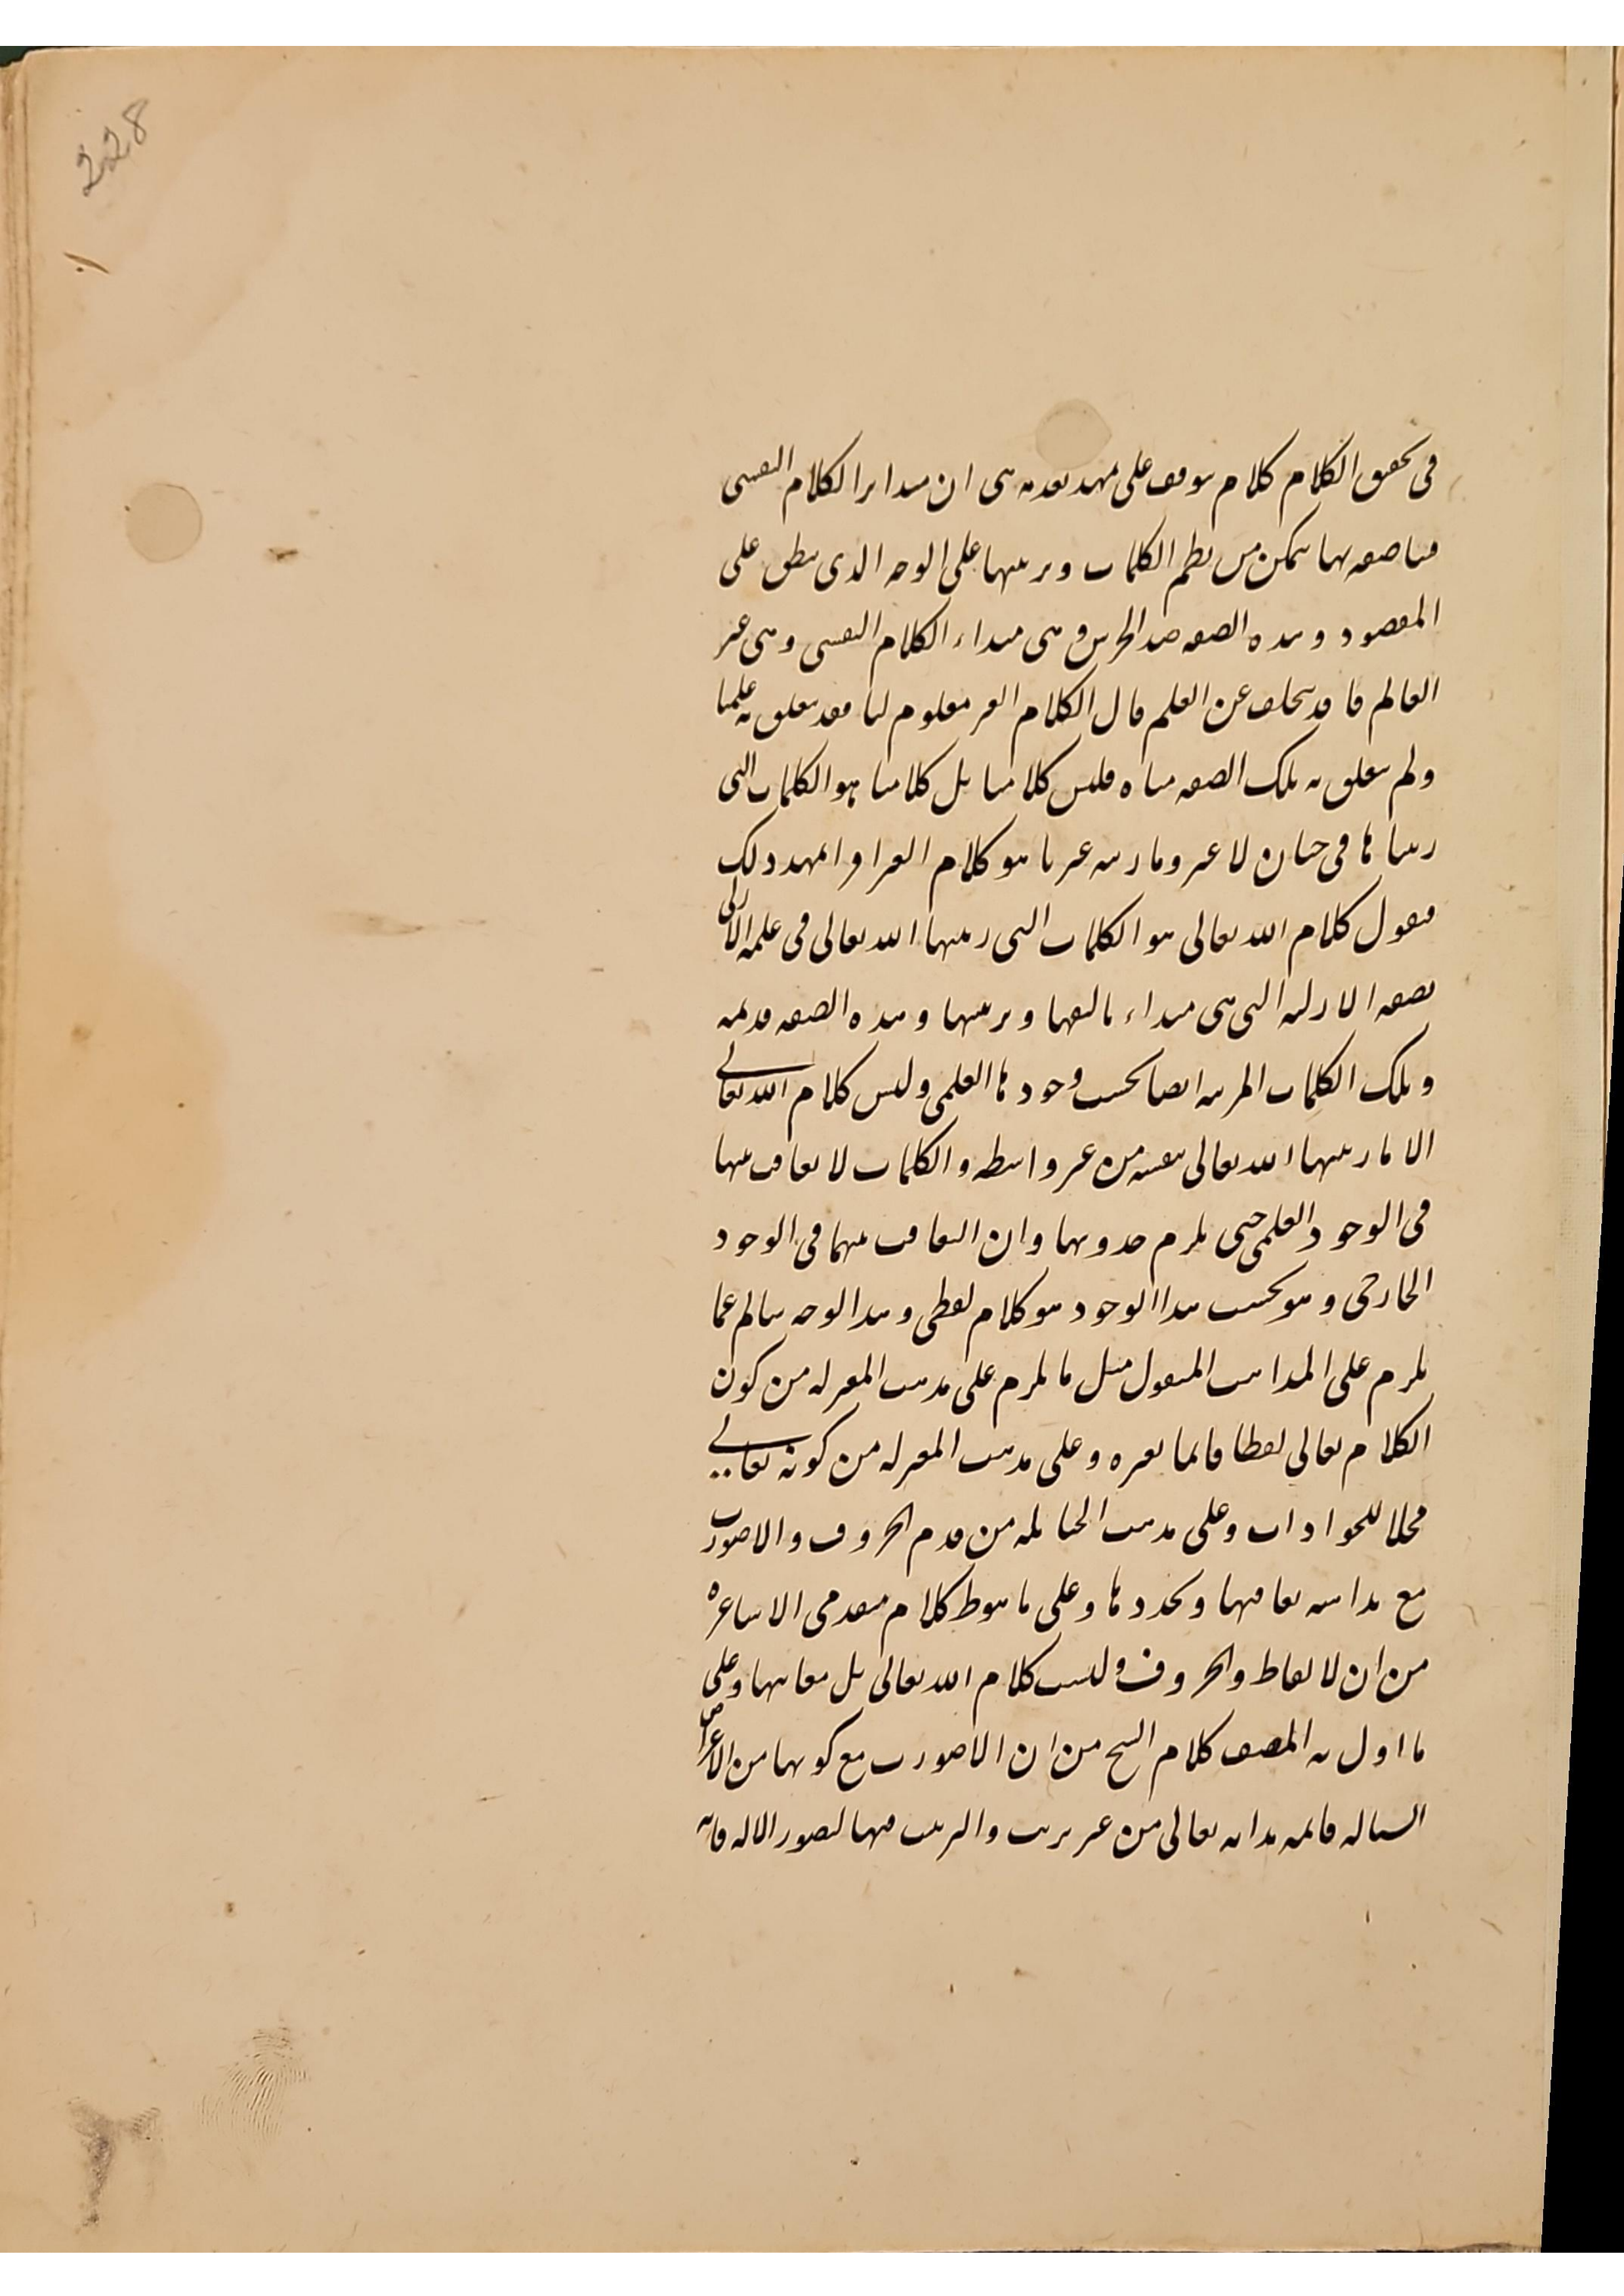 228
فى تحقيق الكلام كلام يتوقف على تمهيد مقدمة هى ان مبدا الكلام النفسى
فينا صفة بها يتمكن من نظم الكلمات وترتيبها على الوجه الذى ينطبق على
المقصود وهذه الصفة ضد الخرس وهى مبداء الكلام النفسى وهى غير
العالم فا قد يتخلف عن العلم فال الكلام الغير معلوم لنا فقد يتعلق به علمنا
ولم يتعلق به تلك الصفة مناه فليس كلامنا بل كلامنا هو الكلمات التى
رتبناها فى خيان لا غير وما رتبه غيرنا هو كلام الغير اوا تمهد ذلك
فنقول كلام الله تعالى هو الكلمات التى رتبها الله تعالى فى علمه الازلى
بصفة الازلية التى هى مبداء تاليفها وترتيبها وهذه الصفة قديمة
وتلك الكلمات المرتبة ايضا بحسب وجودها العلمى وليس كلام الله تعالى
الا ما رتبها الله تعالى بنفسه من غير واسطه والكلمات لا تعاقب بينها
فى الوجود العلمى حتى يلزم حدوثها وان التعاقب بينها فى الوجود
الخارجى وهو بحسب هذا الوجود هو كلام لفظى وهذا الوجه سالم عما
يلزم على المذاهب المنقول مثل ما يلزم على مذهب المعتزله من كون
الكلام تعالى لفظا قائما بغيره وعلى مذهب المعتزله من كونه تعالى
محلا للحواداث وعلى مذهب الحنابله من قدم الحروف والاصورت
مع بداهه تعاقبها وتجددها وعلى ما هوظ كلام متقدمى الاشاعره
من ان لا لفاظ والحروف وليست كلام الله تعالى بل معانيها وعلى
ما اول به المصنف كلام الشيخ من ان الاصورت مع كونها من الاعراض
السياله قائمه بذاته تعالى من غير ترتيب والترتيب فيها لتصور الاله فانه